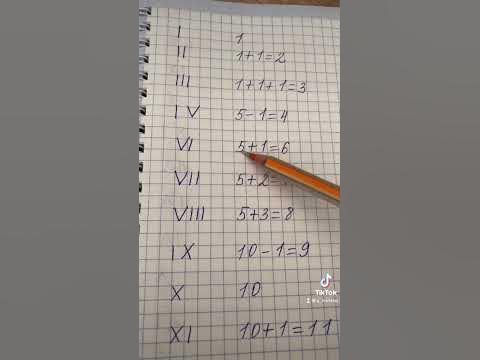 I 1
II 1+1=2
III 1+1+1=3
IV 5-1=4
VI 5+1=6
VII 5+2=
VIII 5+3=8
IX 10-1=9
X 10
TikTok
XI 10+1=11